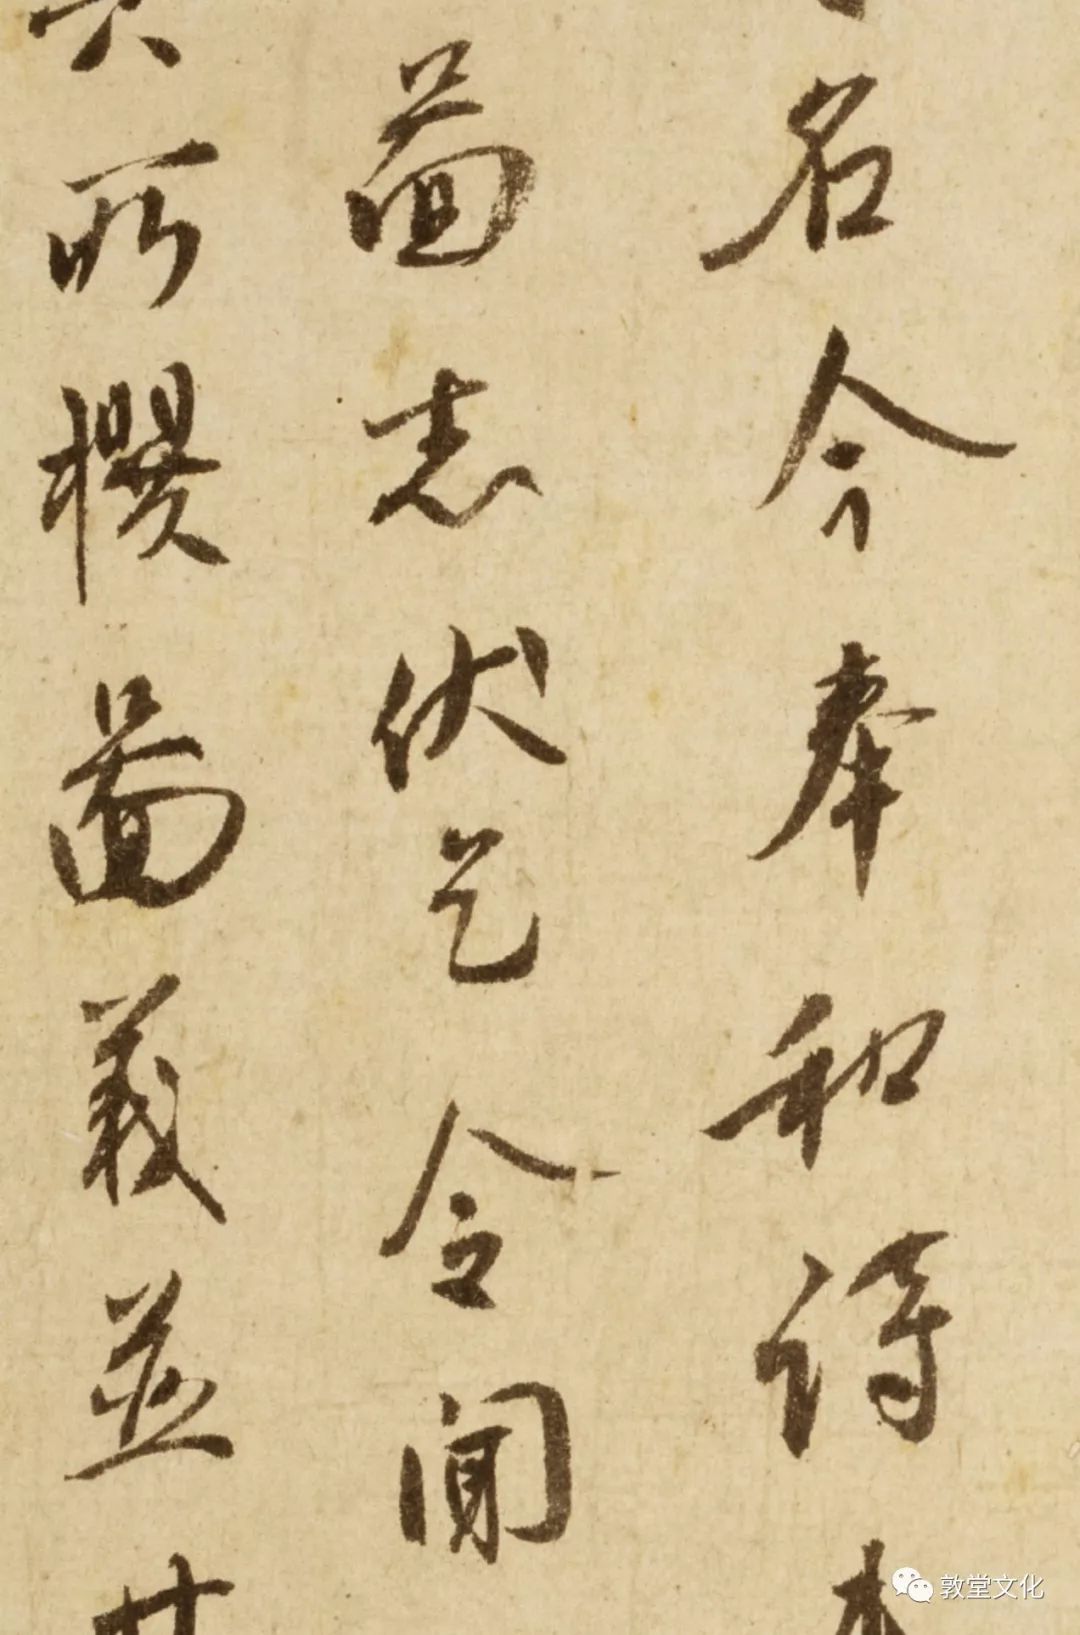 名今奉和詩
圖志伏乞令聞
所撰圖義並
敦堂文化